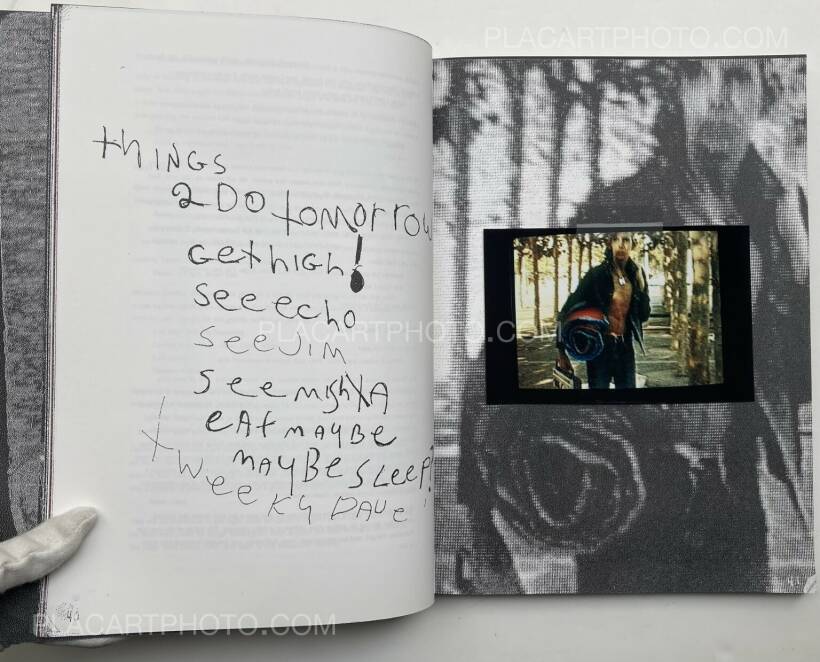 PLACARTPHOTO.COM
things
2 DO tomorrow
Get high!
see echo
see Jim
see mish
eat maybe
maybe sleep?
tweeky Dave
PLACARTPHOTO.COM
PLACARTPHOTO.COM